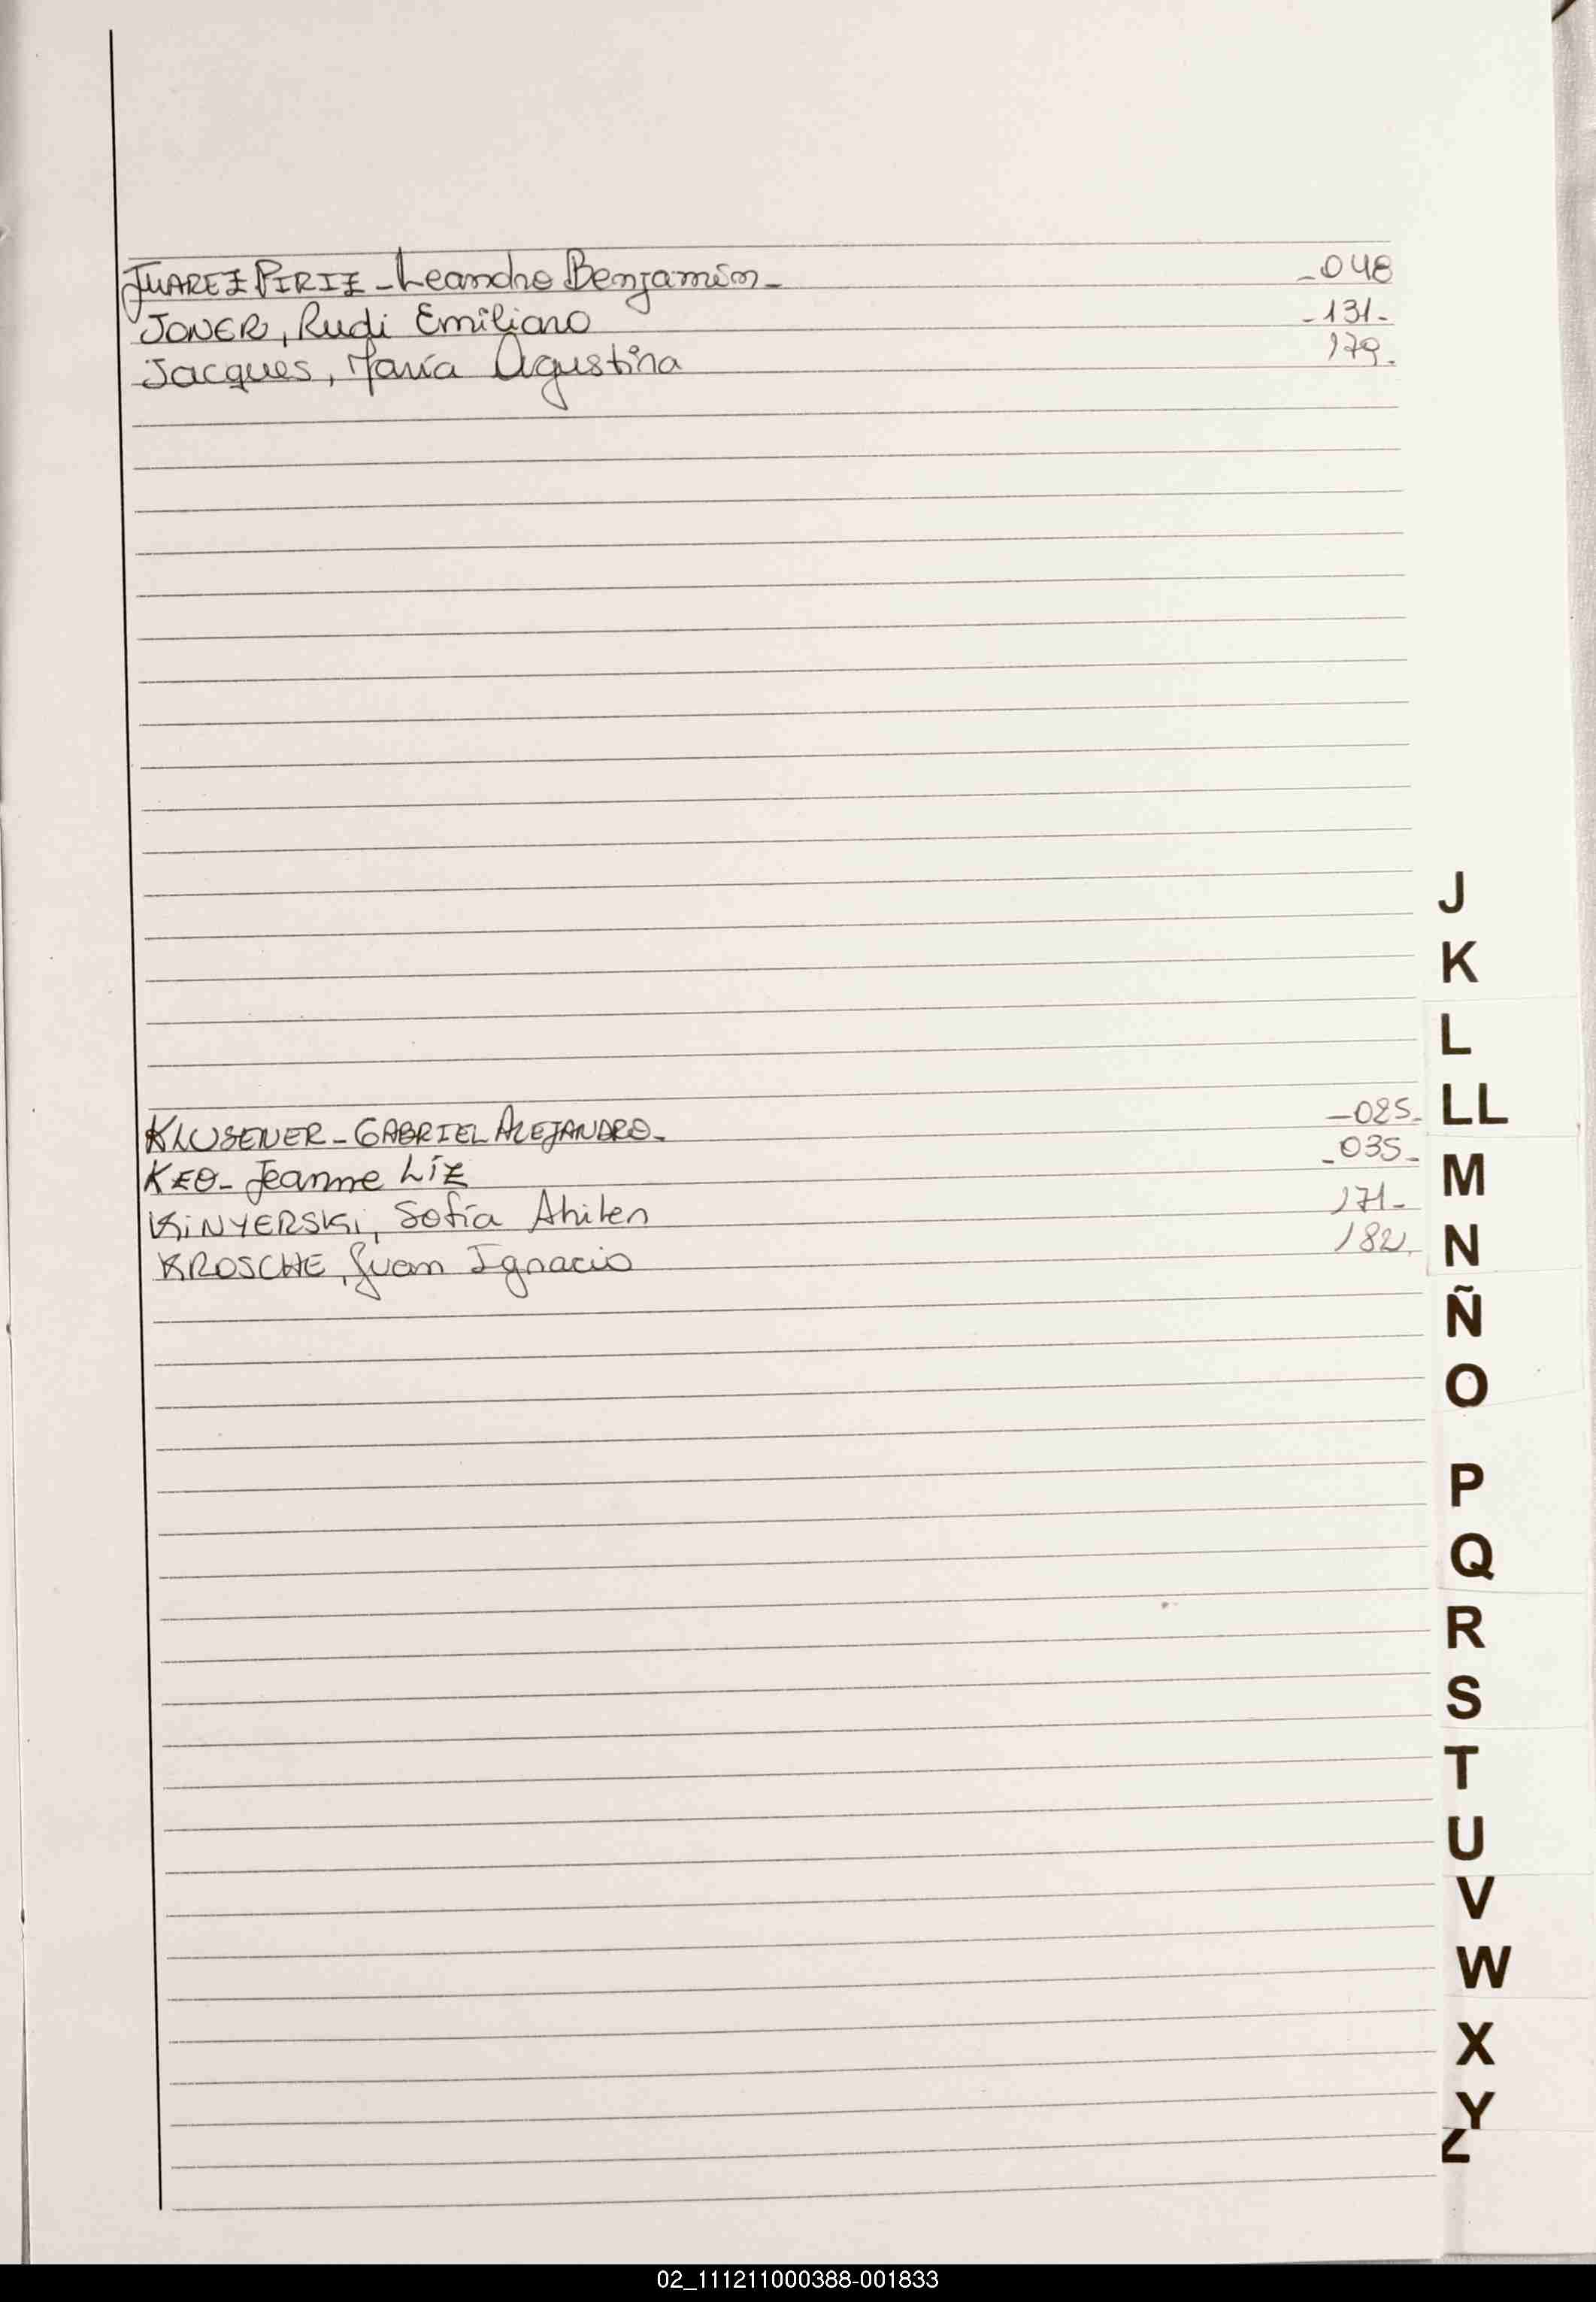 JUAREZ PIRIZ - Leandro Benjamín - - 048
JONER, Rudi Emiliano - 131 -
Jacques, María Agustina 179.
J
K
L
LL
KLUSENER - GABRIEL ALEJANDRO - - 025 -
KEO - Jeanne Liz - 035 -
M
KINYERSKI, Sofía Ahilen 171 -
KROSCHE, Juan Ignacio 182.
N
Ñ
O
P
Q
R
S
T
U
V
W
X
Y
Z
02_111211000388-001833